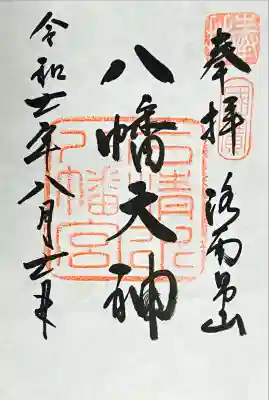 奉拝 洛南男山
八幡大神
令和 年八月 日
石清水
八幡宮